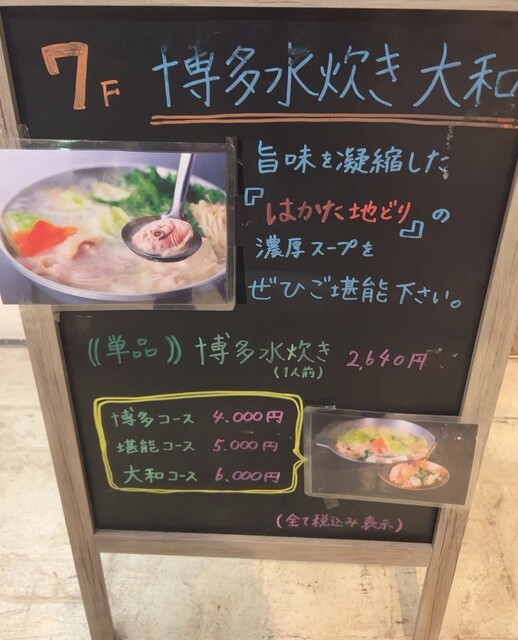 7F 博多水炊き 大和
旨味を凝縮した
『はかた地どり』の
濃厚スープを
ぜひご堪能下さい。
《単品》博多水炊き 2,640円
(1人前)
博多コース 4.000円
堪能コース 5.000円
大和コース 6.000円
(全て税込み表示)